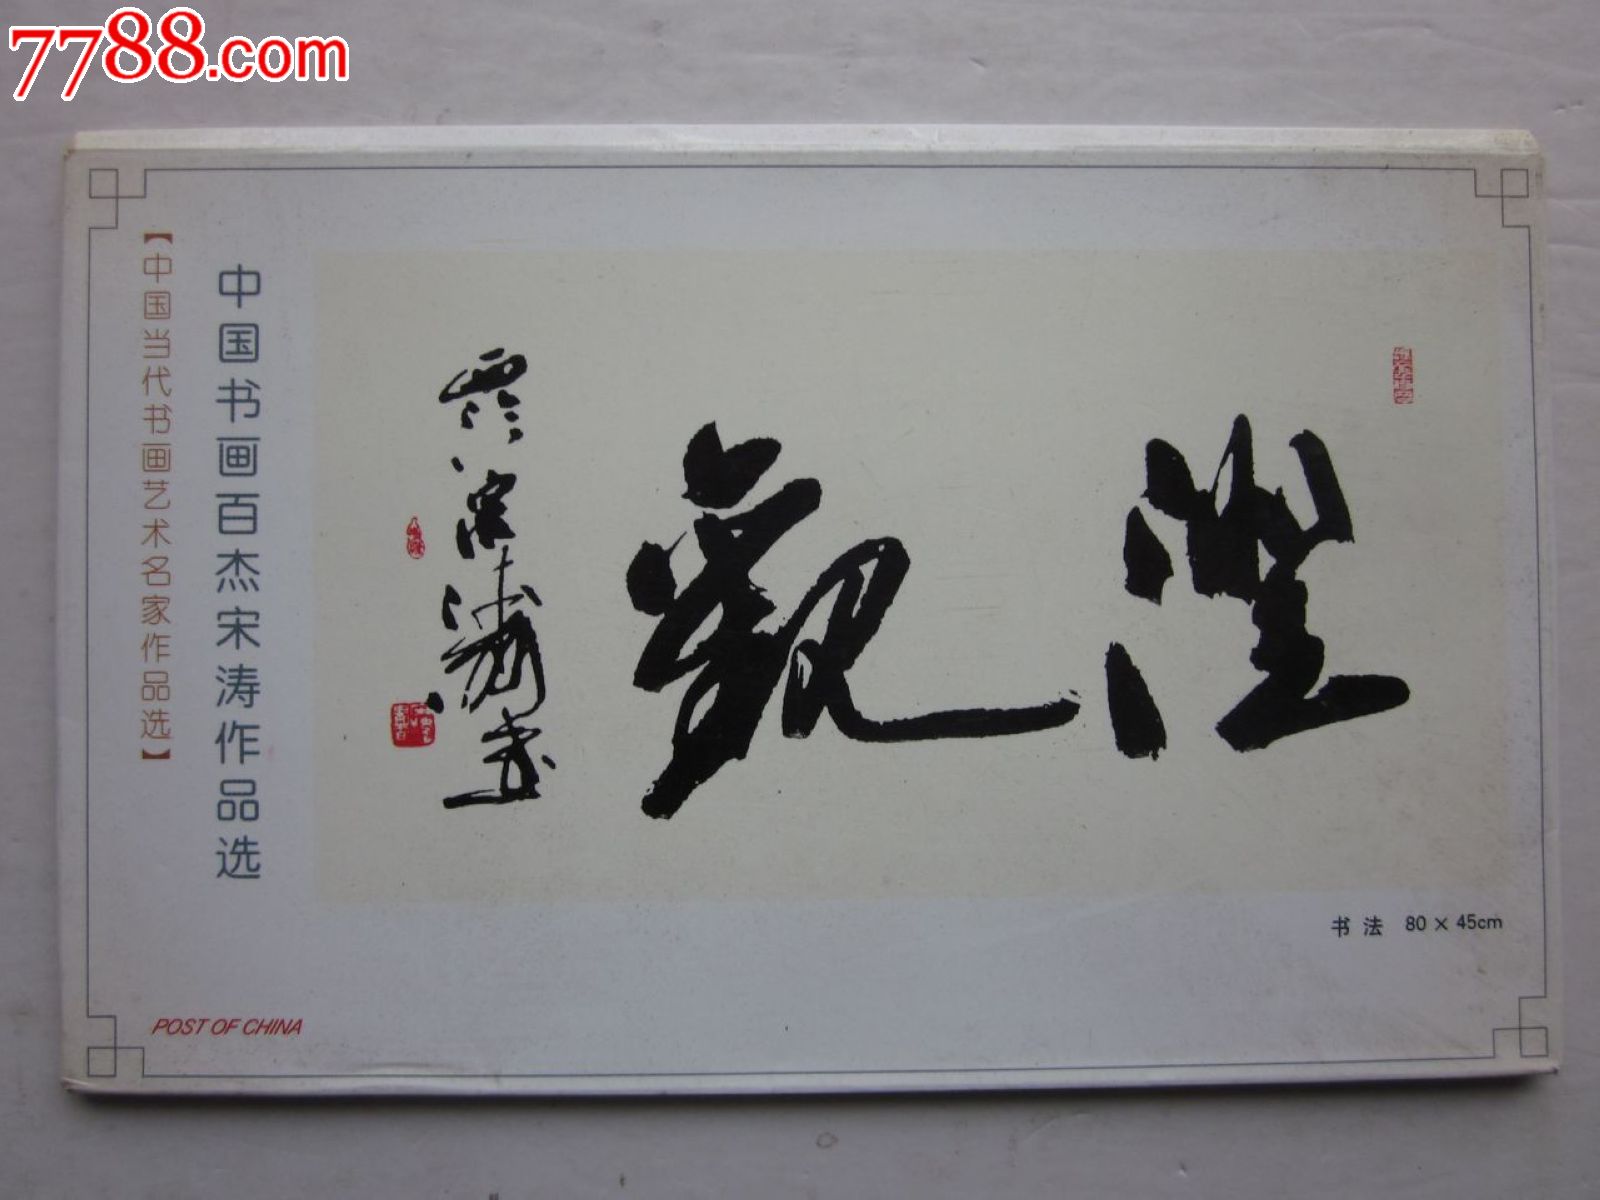 7788.com
【中国当代书画艺术名家作品选】
中国书画百杰宋涛作品选
澄觀
宋濤書
书法 80×45cm
POST OF CHINA